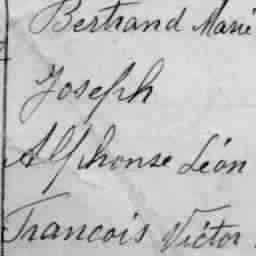 Bertrand Marie
Joseph
Alphonse Léon
Francois Victor